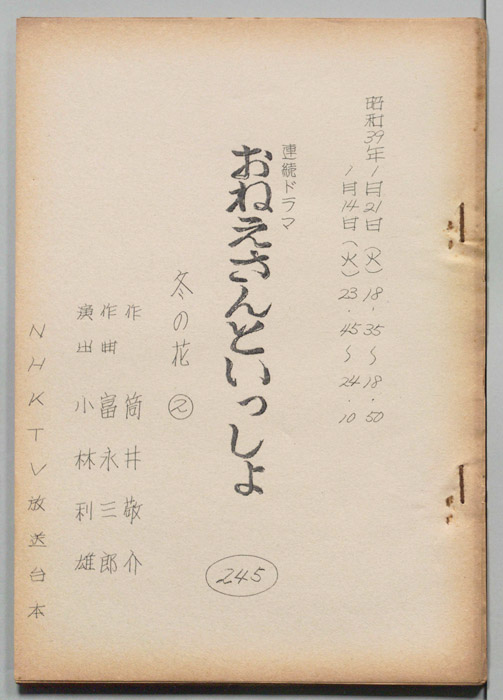 昭和39年1月21日(火)18・35〜18・50
1月14日(火)23・45〜24・10
連続ドラマ
おねえさんといっしょ
冬の花 ②
作 筒井敬介
作曲 富永三郎
演出 小林利雄
NHKTV放送台本
245